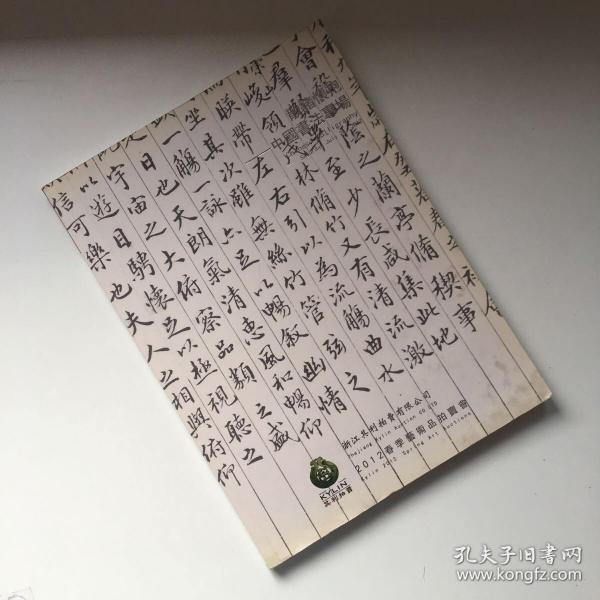 會陰之蘭亭脩稧事
羣賢畢至少長咸集此地
峻領茂林脩竹又有清流激
暎帶左右引以為流觴曲水
坐其次雖無絲竹管弦之
一觴一詠亦足以暢敘幽情
日也天朗氣清惠風和暢仰
宇宙之大俯察品類之盛
以遊目騁懷足以極視聽之
信可樂也夫人之相與俯仰
中國書法專場
浙江其利拍賣有限公司
Zhejiang Kylin Auction CO.LTD
2012春季藝術品拍賣會
Kylin 2012 Spring Art Auctions
KYLIN
其利拍賣
孔夫子旧书网
www.kongfz.com